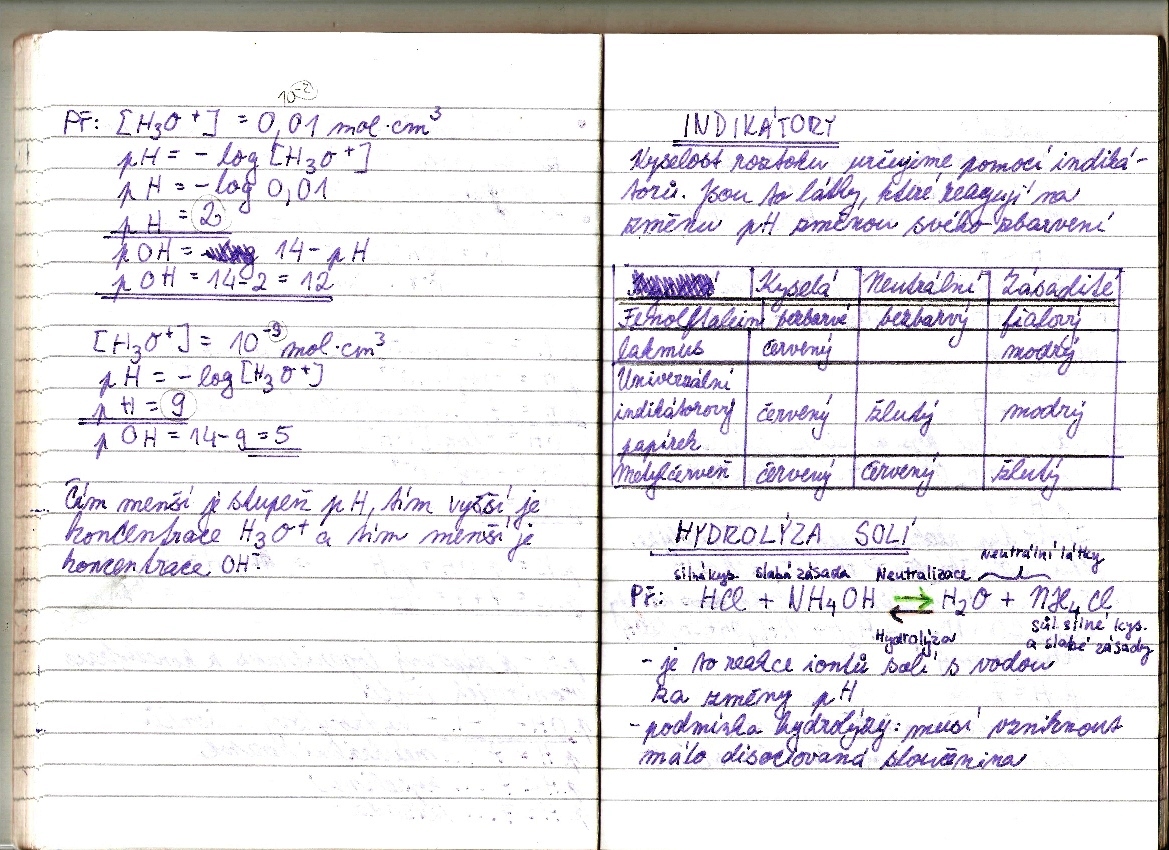 10⁻²
Př: [H₃O⁺] = 0,01 mol·cm³
pH = - log [H₃O⁺]
pH = - log 0,01
pH = 2
pOH = 14 - pH
pOH = 14-2 = 12
[H₃O⁺] = 10⁻⁹ mol·cm³
pH = - log [H₃O⁺]
pH = 9
pOH = 14-9 = 5
Čím menší je stupeň pH, tím vyšší je
koncentrace H₃O⁺ a tím menší je
koncentrace OH⁻.
INDIKÁTORY
Kyselost roztoku určujeme pomocí indiká-
torů. Jsou to látky, které reagují na
změnu pH změnou svého zbarvení
Kyselá Neutrální Zásadité
Fenolftalein bezbarvé bezbarvý fialový
lakmus červený modrý
Univerzální
indikátorový červený žlutý modrý
papírek
Metylčerveň červený červený žlutý
HYDROLÝZA SOLÍ
Neutrální látky
silná kys. slabá zásada Neutralizace
Př: HCl + NH₄OH ⇄ H₂O + NH₄Cl
Hydrolýza
sůl silné kys.
a slabé zásady
- je to reakce iontů solí s vodou
za změny pH
- podmínka hydrolýzy: musí vzniknout
málo disociovaná sloučenina